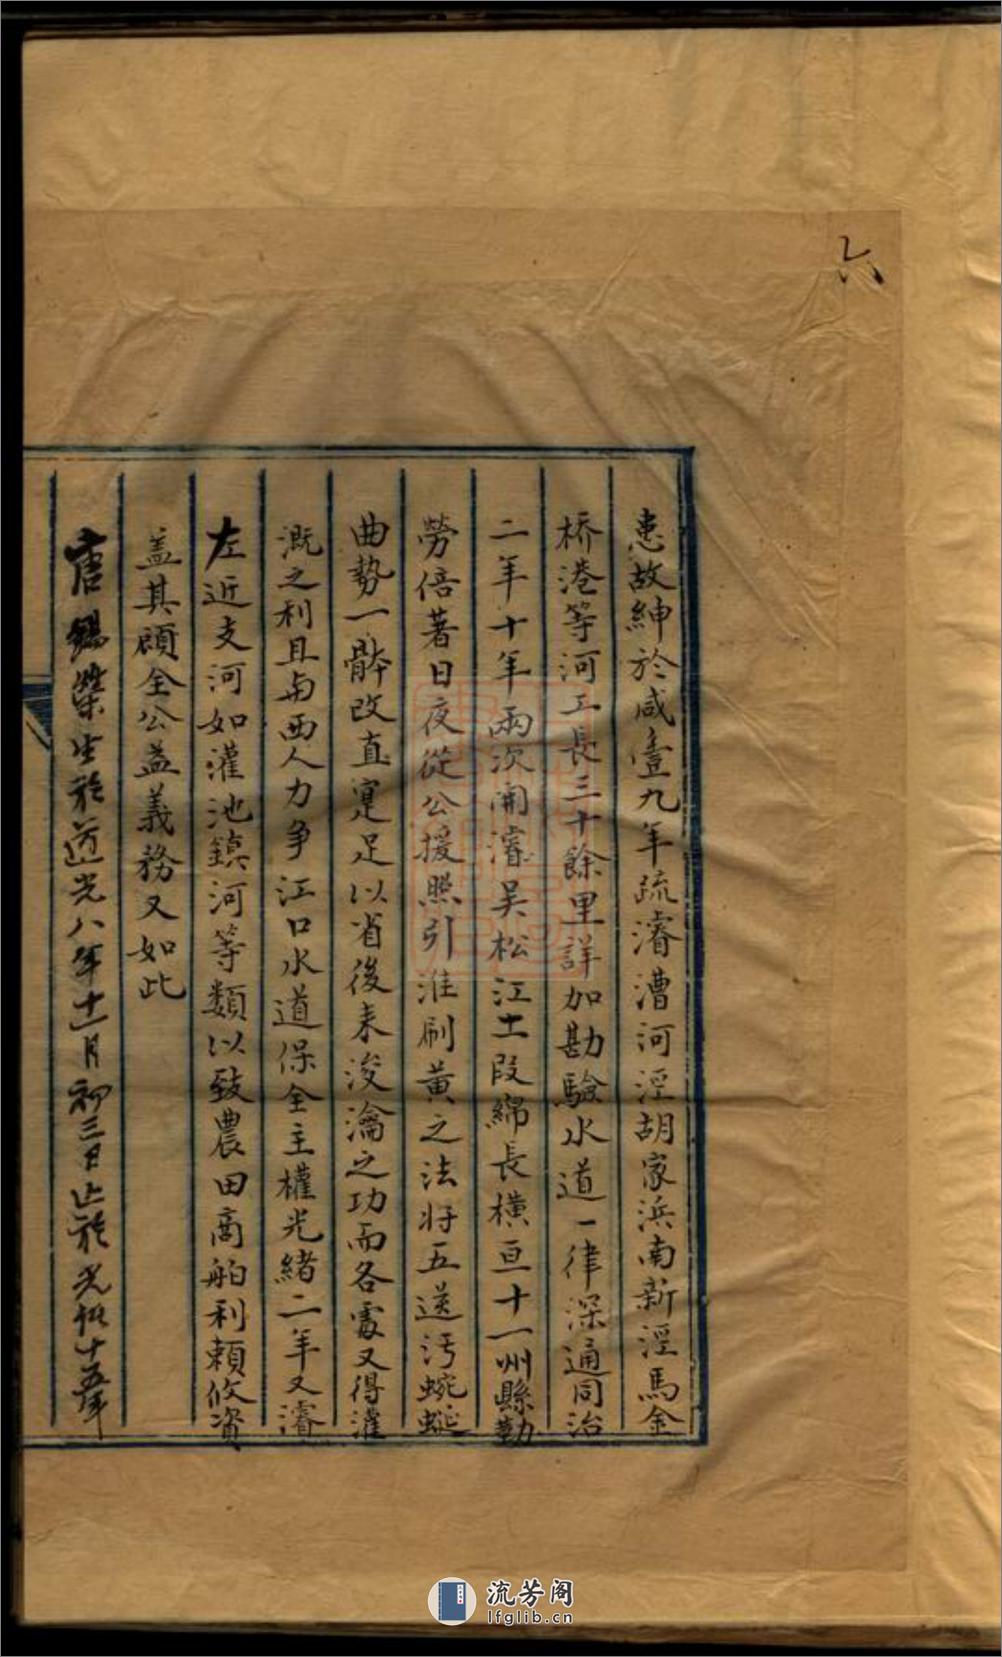 六
患故紳於咸壹九年疏濬漕河涇胡家浜南新涇馬金
桥港等河工長三十餘里詳加勘驗水道一律深通同治
二年十年兩次開濬吴松江土段綿長橫亘十一州縣勤
勞倍著日夜從公援照引淮刷黃之法将五送汚蜿蜒
曲勢一骵改直寔足以省後来浚瀹之功而各處又得灌
溉之利且与西人力争江口水道保全主權光緒二年又濬
左近支河如灌池鎮河等類以致農田商舶利賴攸資
盖其顧全公益義務又如此
唐錫榮生於道光八年十一月初三日止於光緒十五年
流芳阁
lfglib.cn